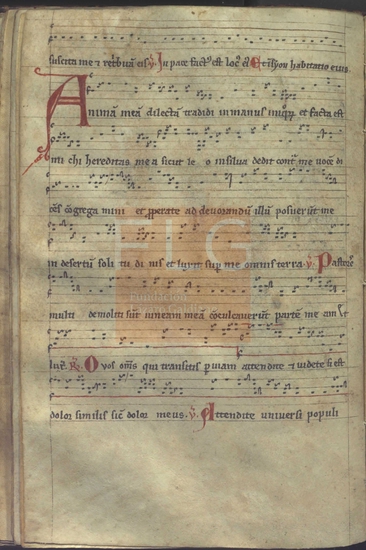 suscita me et rebuā eis ℣ In pace fact' est loc' ei' Et in syon habitatio eius
Animā meā dilectā tradidi in manus iniqꝝ et facta est
mi chi hereditas me a sicut le o in silua dedit cont me uocē di
cēs cōgrega mini et pperate ad deuorandū illū posuerūt me
in desertū soli tu di nis et luxit sup me omnis terra ℣ Pastores
multi demoliti sūt uineam meā cōculcauerūt partē me am
℟ O uos oms qui transitis p uiam attendite et uidete si est
dolor similis sic dolor meus ℣ Attendite uniuersi populi